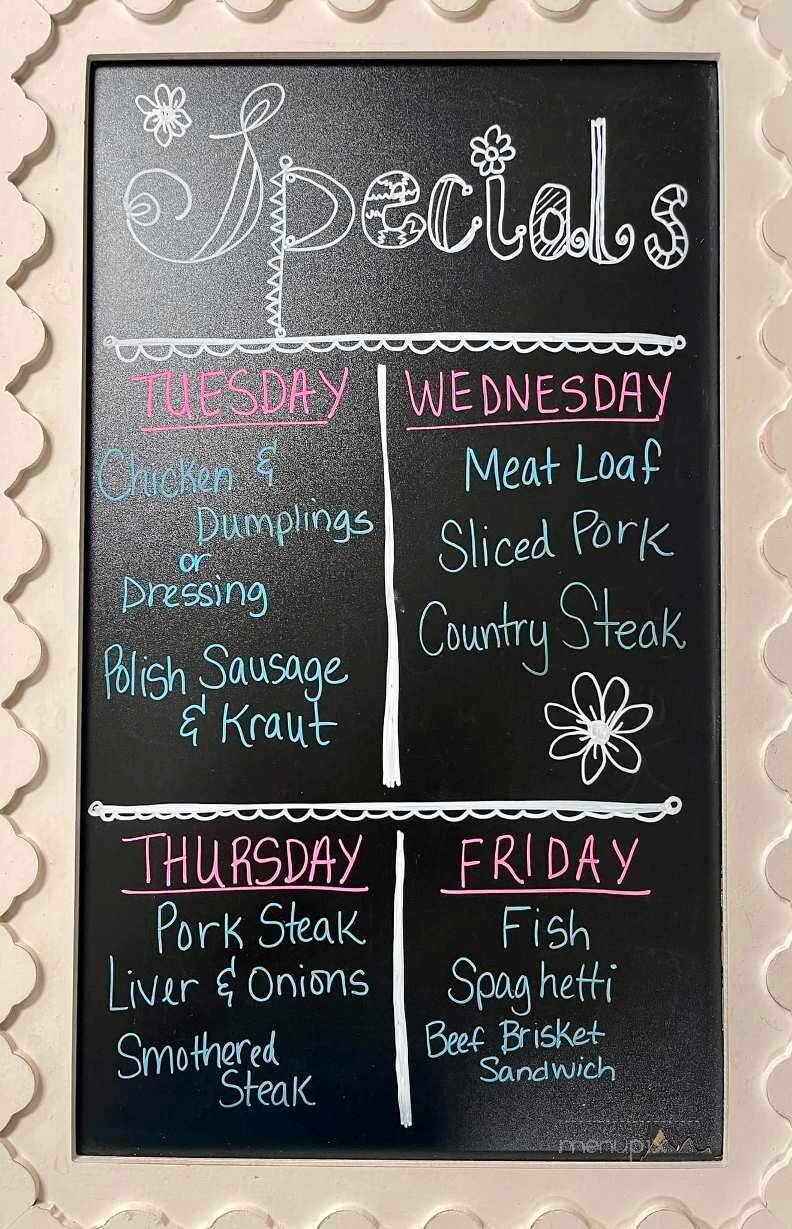 Specials
TUESDAY
Chicken &
Dumplings
or
Dressing
Polish Sausage
& Kraut
WEDNESDAY
Meat Loaf
Sliced Pork
Country Steak
THURSDAY
Pork Steak
Liver & Onions
Smothered
Steak
FRIDAY
Fish
Spaghetti
Beef Brisket
Sandwich
menupix